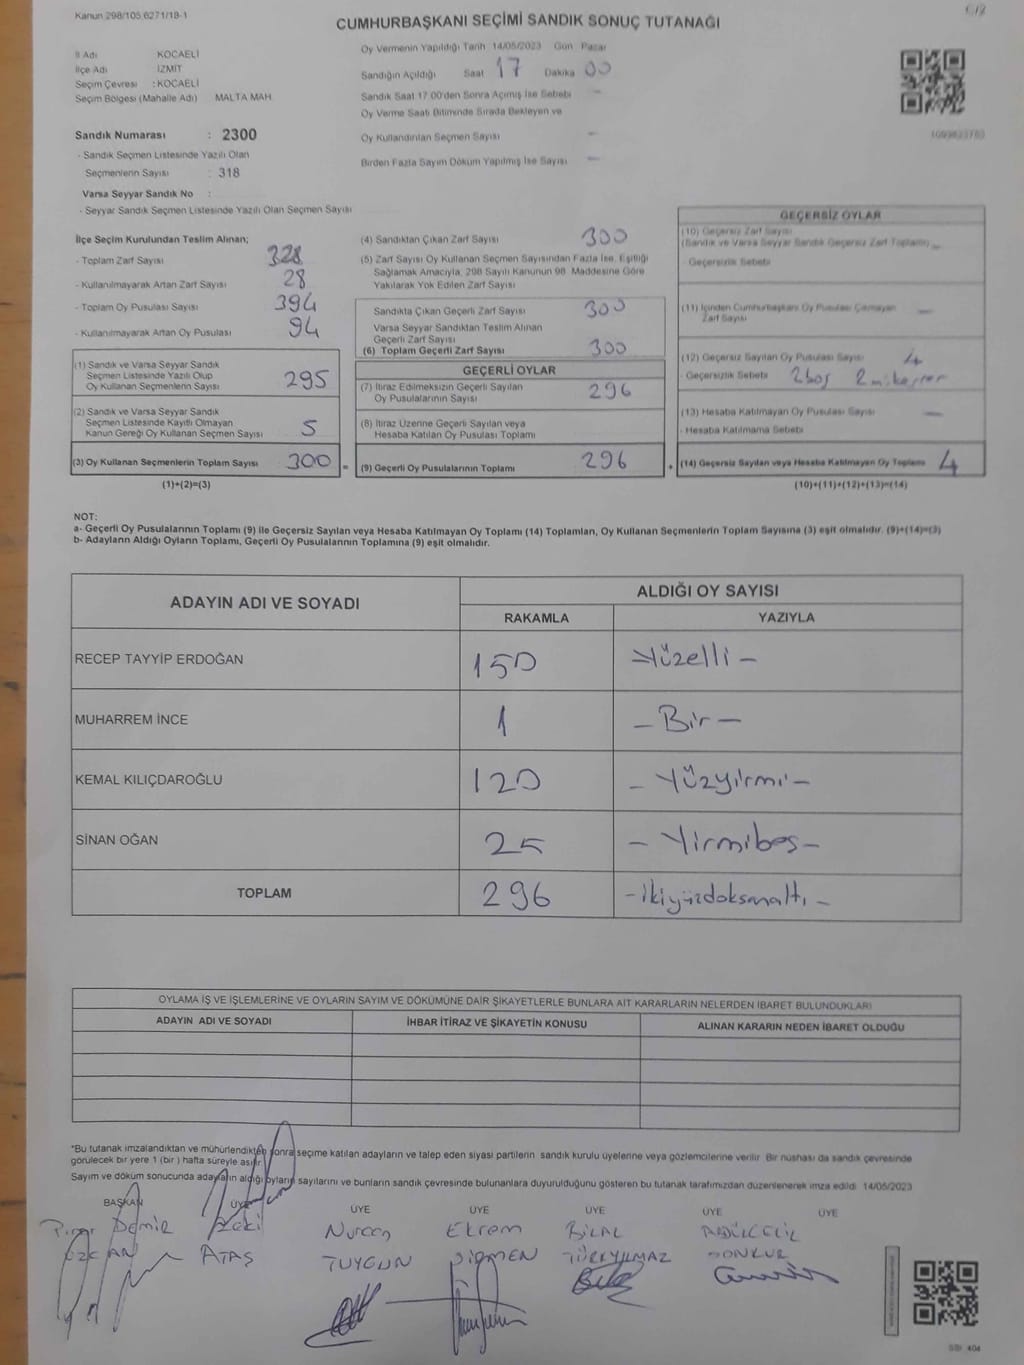 Kanun 298/105,6271/18-1
CUMHURBAŞKANI SEÇİMİ SANDIK SONUÇ TUTANAĞI
İl Adı KOCAELİ
İlçe Adı İZMİT
Seçim Çevresi : KOCAELİ
Seçim Bölgesi (Mahalle Adı) MALTA MAH.
Oy Vermenin Yapıldığı Tarih 14/05/2023 Gün Pazar
Sandığın Açıldığı Saat 17 Dakika 00
Sandık Saat 17:00'den Sonra Açımış İse Sebebi —
Oy Verme Saati Bitiminde Sırada Bekleyen ve
Oy Kullandırılan Seçmen Sayısı —
Birden Fazla Sayım Döküm Yapılmış İse Sayısı —
Sandık Numarası : 2300
- Sandık Seçmen Listesinde Yazılı Olan
Seçmenlerin Sayısı : 318
Varsa Seyyar Sandık No :
- Seyyar Sandık Seçmen Listesinde Yazılı Olan Seçmen Sayısı
İlçe Seçim Kurulundan Teslim Alınan;
- Toplam Zarf Sayısı 328
- Kullanılmayarak Artan Zarf Sayısı 28
- Toplam Oy Pusulası Sayısı 394
- Kullanılmayarak Artan Oy Pusulası 94
(1) Sandık ve Varsa Seyyar Sandık
Seçmen Listesinde Yazılı Olup
Oy Kullanan Seçmenlerin Sayısı 295
(2) Sandık ve Varsa Seyyar Sandık
Seçmen Listesinde Kayıtlı Olmayan
Kanun Gereği Oy Kullanan Seçmen Sayısı 5
(3) Oy Kullanan Seçmenlerin Toplam Sayısı 300 =
(1)+(2)=(3)
(4) Sandıktan Çıkan Zarf Sayısı 300
(5) Zarf Sayısı Oy Kullanan Seçmen Sayısından Fazla İse, Eşitliği
Sağlamak Amacıyla, 298 Sayılı Kanunun 98. Maddesine Göre
Yakılarak Yok Edilen Zarf Sayısı
Sandıkta Çıkan Geçerli Zarf Sayısı 300
Varsa Seyyar Sandıktan Teslim Alınan
Geçerli Zarf Sayısı
(6) Toplam Geçerli Zarf Sayısı 300
GEÇERLİ OYLAR
(7) İtiraz Edilmeksizin Geçerli Sayılan
Oy Pusulalarının Sayısı 296
(8) İtiraz Üzerine Geçerli Sayılan veya
Hesaba Katılan Oy Pusulası Toplamı
(9) Geçerli Oy Pusulalarının Toplamı 296 +
GEÇERSİZ OYLAR
(10) Geçersiz Zarf Sayısı
(Sandık ve Varsa Seyyar Sandık Geçersiz Zarf Toplamı) —
- Geçersizlik Sebebi
(11) İçinden Cumhurbaşkanı Oy Pusulası Çıkmayan
Zarf Sayısı —
(12) Geçersiz Sayılan Oy Pusulası Sayısı 4
- Geçersizlik Sebebi 2 boş 2 mükerrer
(13) Hesaba Katılmayan Oy Pusulası Sayısı —
- Hesaba Katılmama Sebebi
(14) Geçersiz Sayılan veya Hesaba Katılmayan Oy Toplamı 4
(10)+(11)+(12)+(13)=(14)
NOT:
a- Geçerli Oy Pusulalarının Toplamı (9) ile Geçersiz Sayılan veya Hesaba Katılmayan Oy Toplamı (14) Toplamları, Oy Kullanan Seçmenlerin Toplam Sayısına (3) eşit olmalıdır. (9)+(14)=(3)
b- Adayların Aldığı Oyların Toplamı, Geçerli Oy Pusulalarının Toplamına (9) eşit olmalıdır.
ADAYIN ADI VE SOYADI
ALDIĞI OY SAYISI
RAKAMLA YAZIYLA
RECEP TAYYİP ERDOĞAN 150 Yüzelli —
MUHARREM İNCE 1 — Bir —
KEMAL KILIÇDAROĞLU 120 — Yüzyirmi —
SİNAN OĞAN 25 — Yirmibeş —
TOPLAM 296 — ikiyüzdoksanaltı —
OYLAMA İŞ VE İŞLEMLERİNE VE OYLARIN SAYIM VE DÖKÜMÜNE DAİR ŞİKAYETLERLE BUNLARA AİT KARARLARIN NELERDEN İBARET BULUNDUKLARI
ADAYIN ADI VE SOYADI İHBAR İTİRAZ VE ŞİKAYETİN KONUSU ALINAN KARARIN NEDEN İBARET OLDUĞU
*Bu tutanak imzalandıktan ve mühürlendikten sonra seçime katılan adayların ve talep eden siyasi partilerin sandık kurulu üyelerine veya gözlemcilerine verilir. Bir nüshası da sandık çevresinde
görülecek bir yere 1 (bir) hafta süreyle asılır.
Sayım ve döküm sonucunda adayların aldığı oyların sayılarını ve bunların sandık çevresinde bulunanlara duyurulduğunu gösteren bu tutanak tarafımızdan düzenlenerek imza edildi. 14/05/2023
BAŞKAN ÜYE ÜYE ÜYE ÜYE ÜYE ÜYE
Pınar Demir Zeki Nurcan Ekrem BİLAL ABDÜLCELİL
ÖZCAN ATAŞ TUYGUN TÜRKYILMAZ